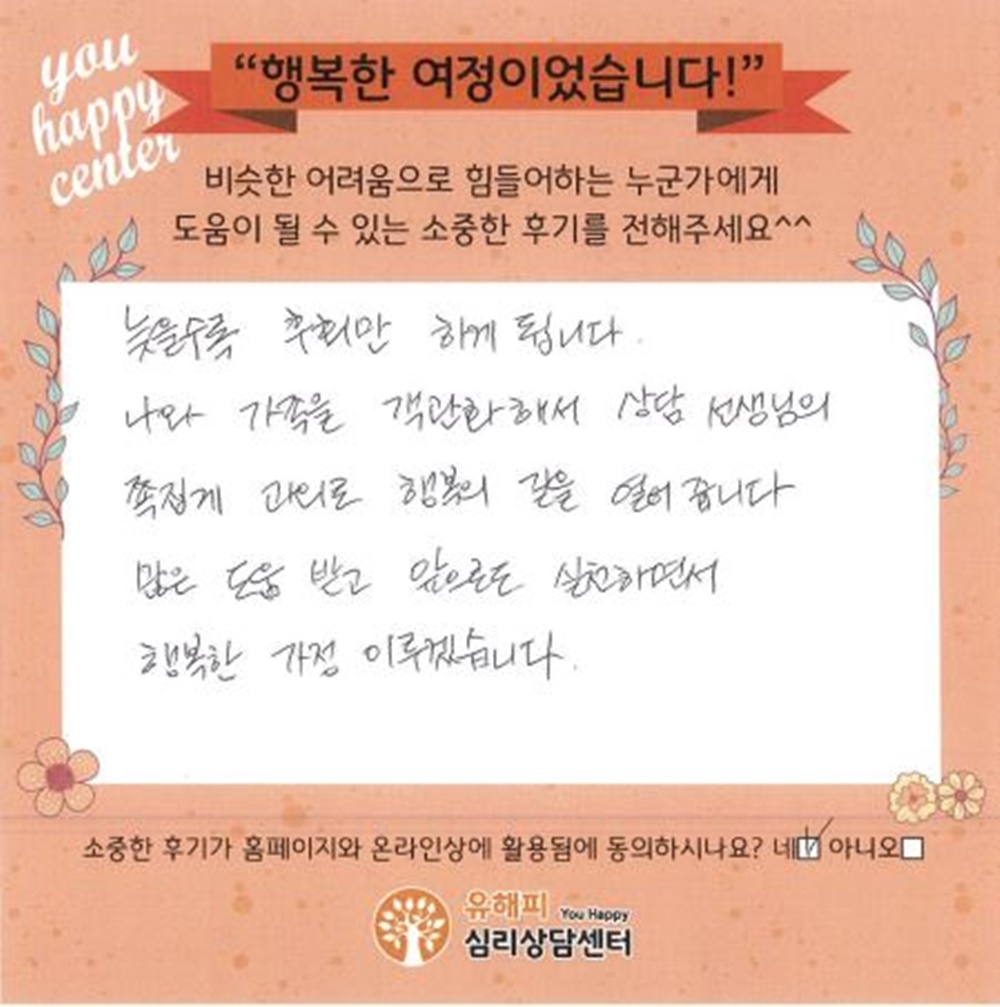 you
happy
center
“행복한 여정이었습니다!”
비슷한 어려움으로 힘들어하는 누군가에게
도움이 될 수 있는 소중한 후기를 전해주세요^^
늦을수록 후회만 하게 됩니다.
나와 가족을 객관화해서 상담 선생님의
쪽집게 과외로 행복의 길을 열어 줍니다
많은 도움 받고 앞으로도 실천하면서
행복한 가정 이루겠습니다.
소중한 후기가 홈페이지와 온라인상에 활용됨에 동의하시나요? 네 아니오
유해피 You Happy
심리상담센터